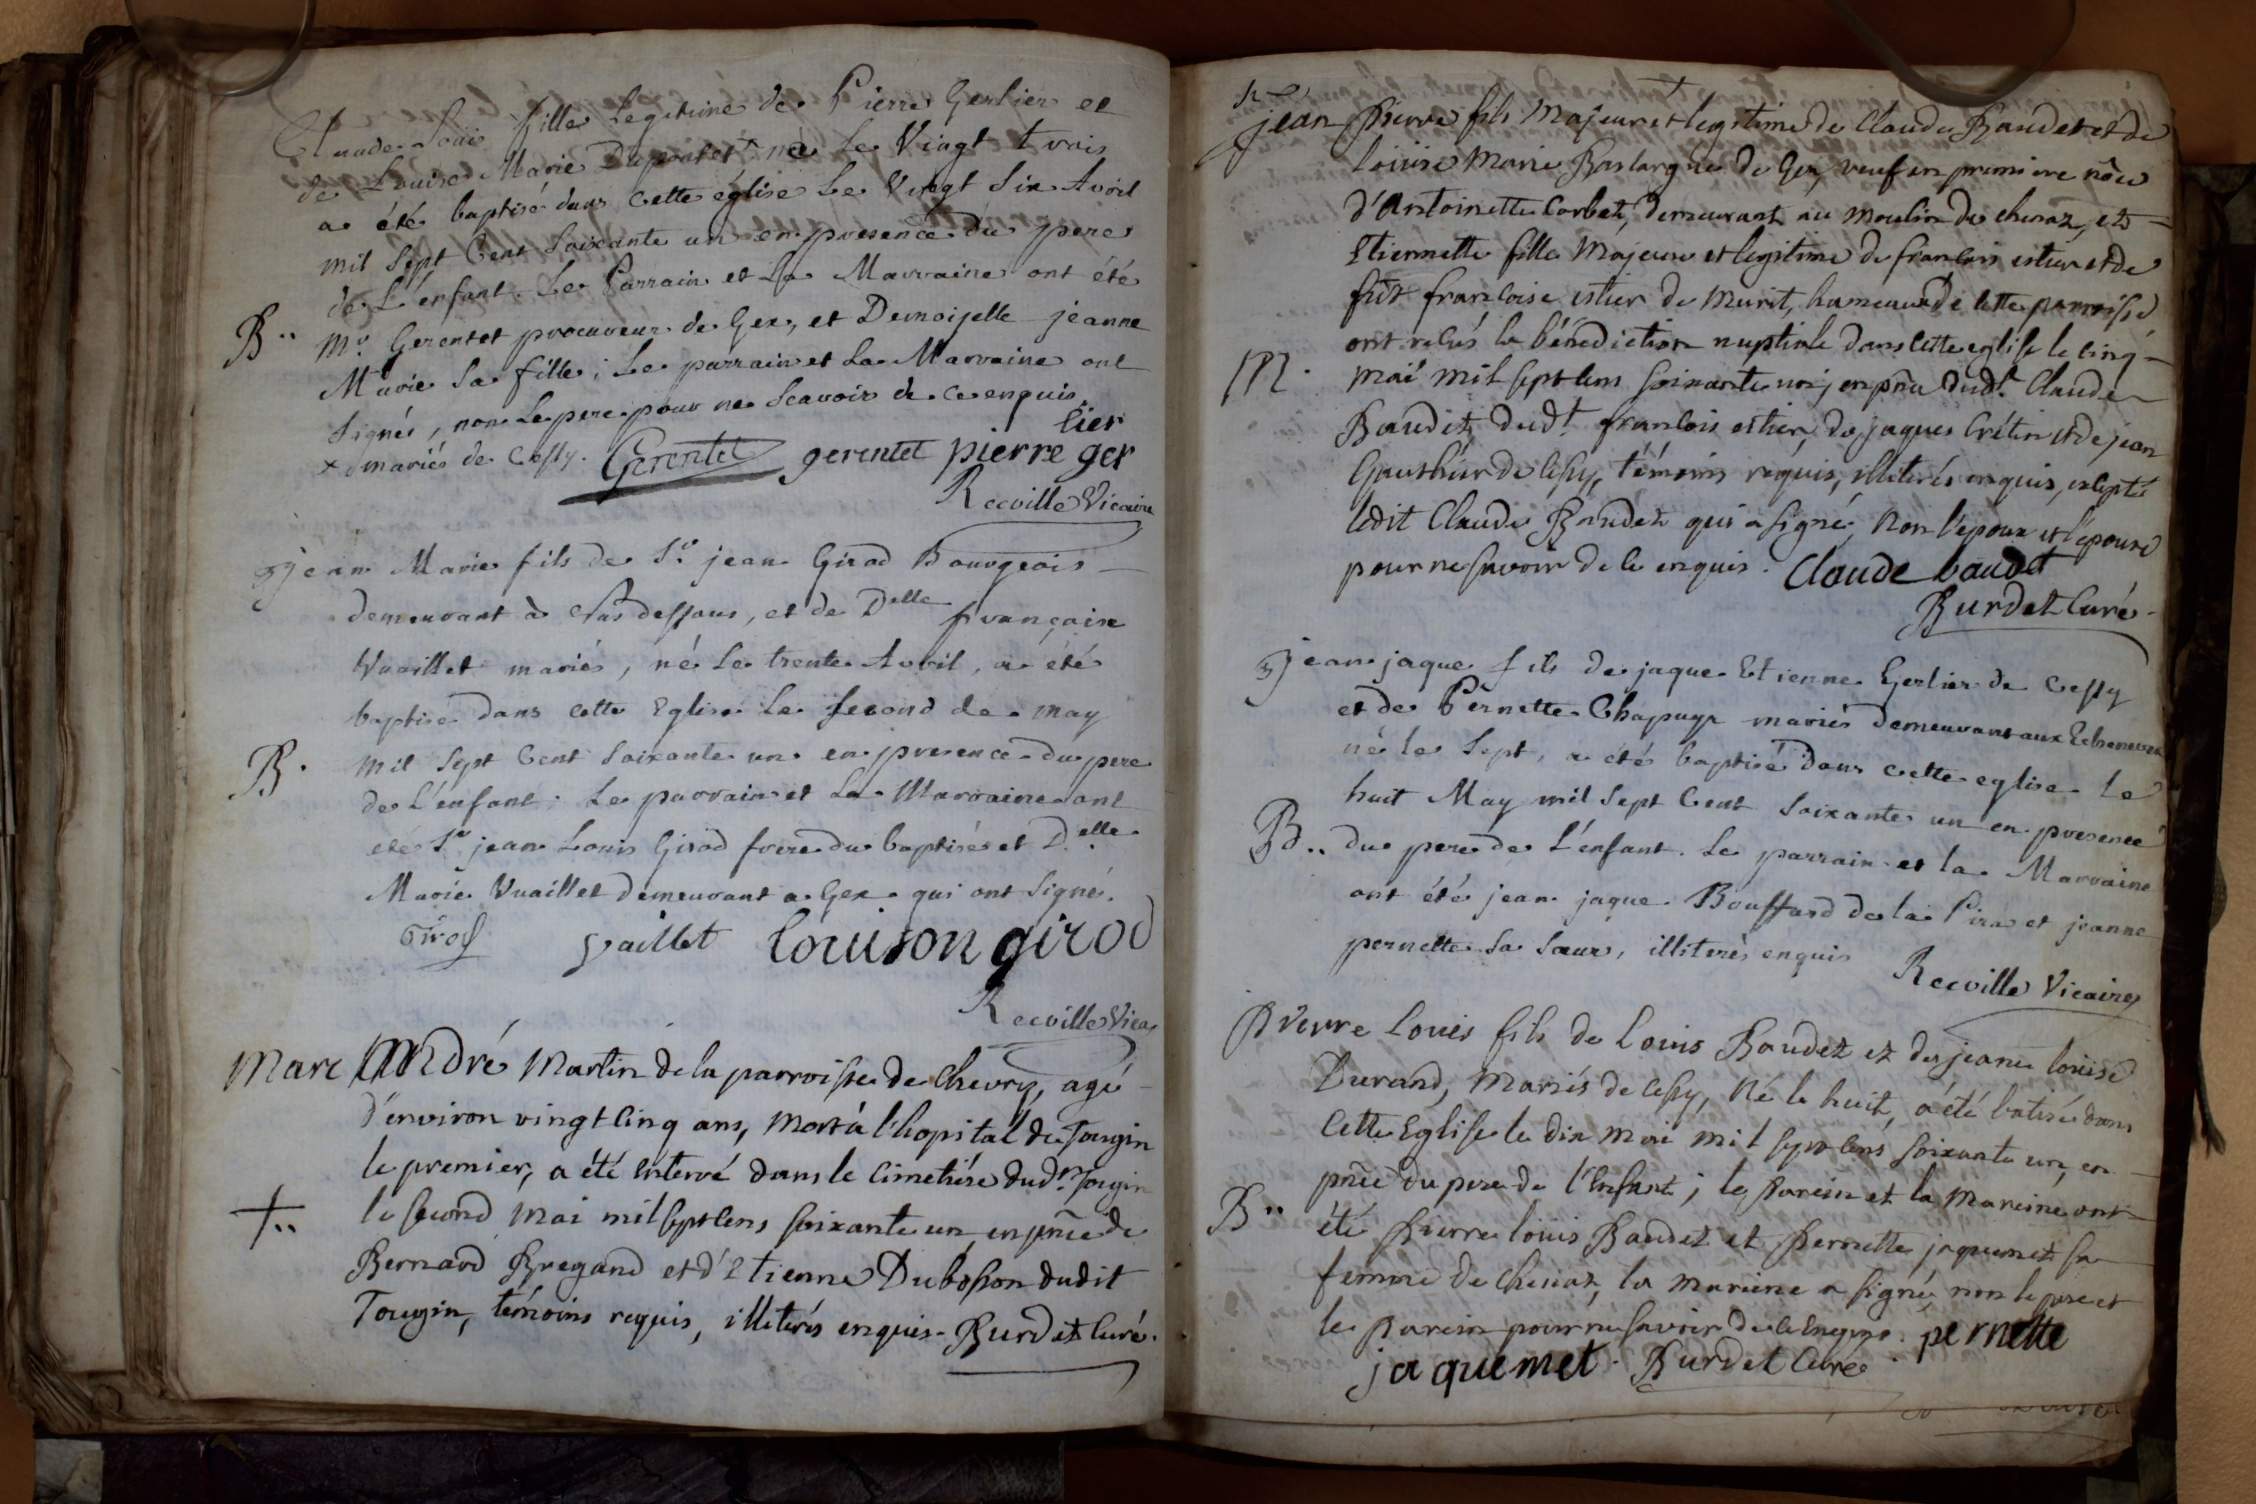 Claude Louis fille Legitime de Pierre Gerlier et
de Louise Marie Dupontet + née Le Vingt trois
a été baptisé dans cette église Le Vingt Six Avril
mil Sept Cent Soixante un en presence du pere
de L'enfant. Le Parrain et La Marraine ont été
B.. Mr. Gerentet procureur de Gex, et Demoiselle jeanne
Marie Sa fille ; Le parrain et La Marraine ont
Signés, non Le pere pour ne Scavoir de ce enquis.
x mariés de Cessy. Gerentet gerentet pierre ger
lier
Recville Vicaire
jean Marie fils de Sr. jean Girod Bourgeois
demeurant à Pas dessous, et de Delle françoise
Vuaillet mariés, né Le trente Avril, a été
baptisé dans cette Eglise Le second de may
B. mil Sept Cent Soixante un en presence du pere
de L'enfant. Le parrain et La Marraine ont
eté Sr. jean Louis Girod frere du baptisé et D.elle
Marie Vuaillet demeurant a Gex qui ont Signé.
Girod vaillet louison girod
Recville Vicai
Marc André Martin de la parroisse de Chevry, agé
d'environ vingt cinq ans, mort à l'hopital de Tougin
le premier, a été enterré dans le cimetiére dudt. Tougin
+.. le second mai mil sept cens soixante un en pnce de
Bernard Bregand et d'Etienne Dubosson dudit
Tougin, témoins requis, illiterés enquis. Burdet Curé.
jean Pierre fils majeur et legitime de Claude Baudet et de
loüise Marie de Gex, veuf en premiere nôce
d'Antoinette Corbet, demeurant au moulin de chenaz, et
Etiennette fille majeure et legitime de françois estier et de
fût françoise estier de Murit, hameau de cette parroisse
ont reçus la bénédiction nuptiale dans cette eglise le cinq
M. mai mil sept cens soixante un, en pnce dudt. Claude
Baudet, dudt. françois estier, de jaques Crétin et de jean
Gauthier de Cessy, témoins requis, illiterés enquis, excepté
ledit Claude Baudet qui a signé, Non l'époux et l'épouse
pour ne savoir de ce enquis. Claude baudet
Burdet Curé.
jean jaque fils de jaque Etienne Gerlier de Cessy
et de Pernette Chapuys mariés demeurant aux Echenevex
né le Sept, a été baptisé dans cette eglise le
huit May mil Sept Cent Soixante un en presence
B.. du pere de L'enfant. Le parrain et la Marraine
ont été jean jaque Bouffard de la Pira et jeanne
pernette Sa Sœur, illiterés enquis
Recville Vicaire
Pierre Louis fils de Louis Baudet et de jeanne loüise
Durand, mariés de Cessy, Né le huit, a été batisé dans
cette Eglise le dix mai mil sept cens soixante un, en
pnce du pere de l'enfant ; le parein et la mareine ont
B.. été Pierre louis Baudet et Pernette jaquemet sa
femme de Chenaz, la mareine a signé, non le pere et
le Parein pour ne savoir de ce enquis. pernette
jaquemet. Burdet Curé